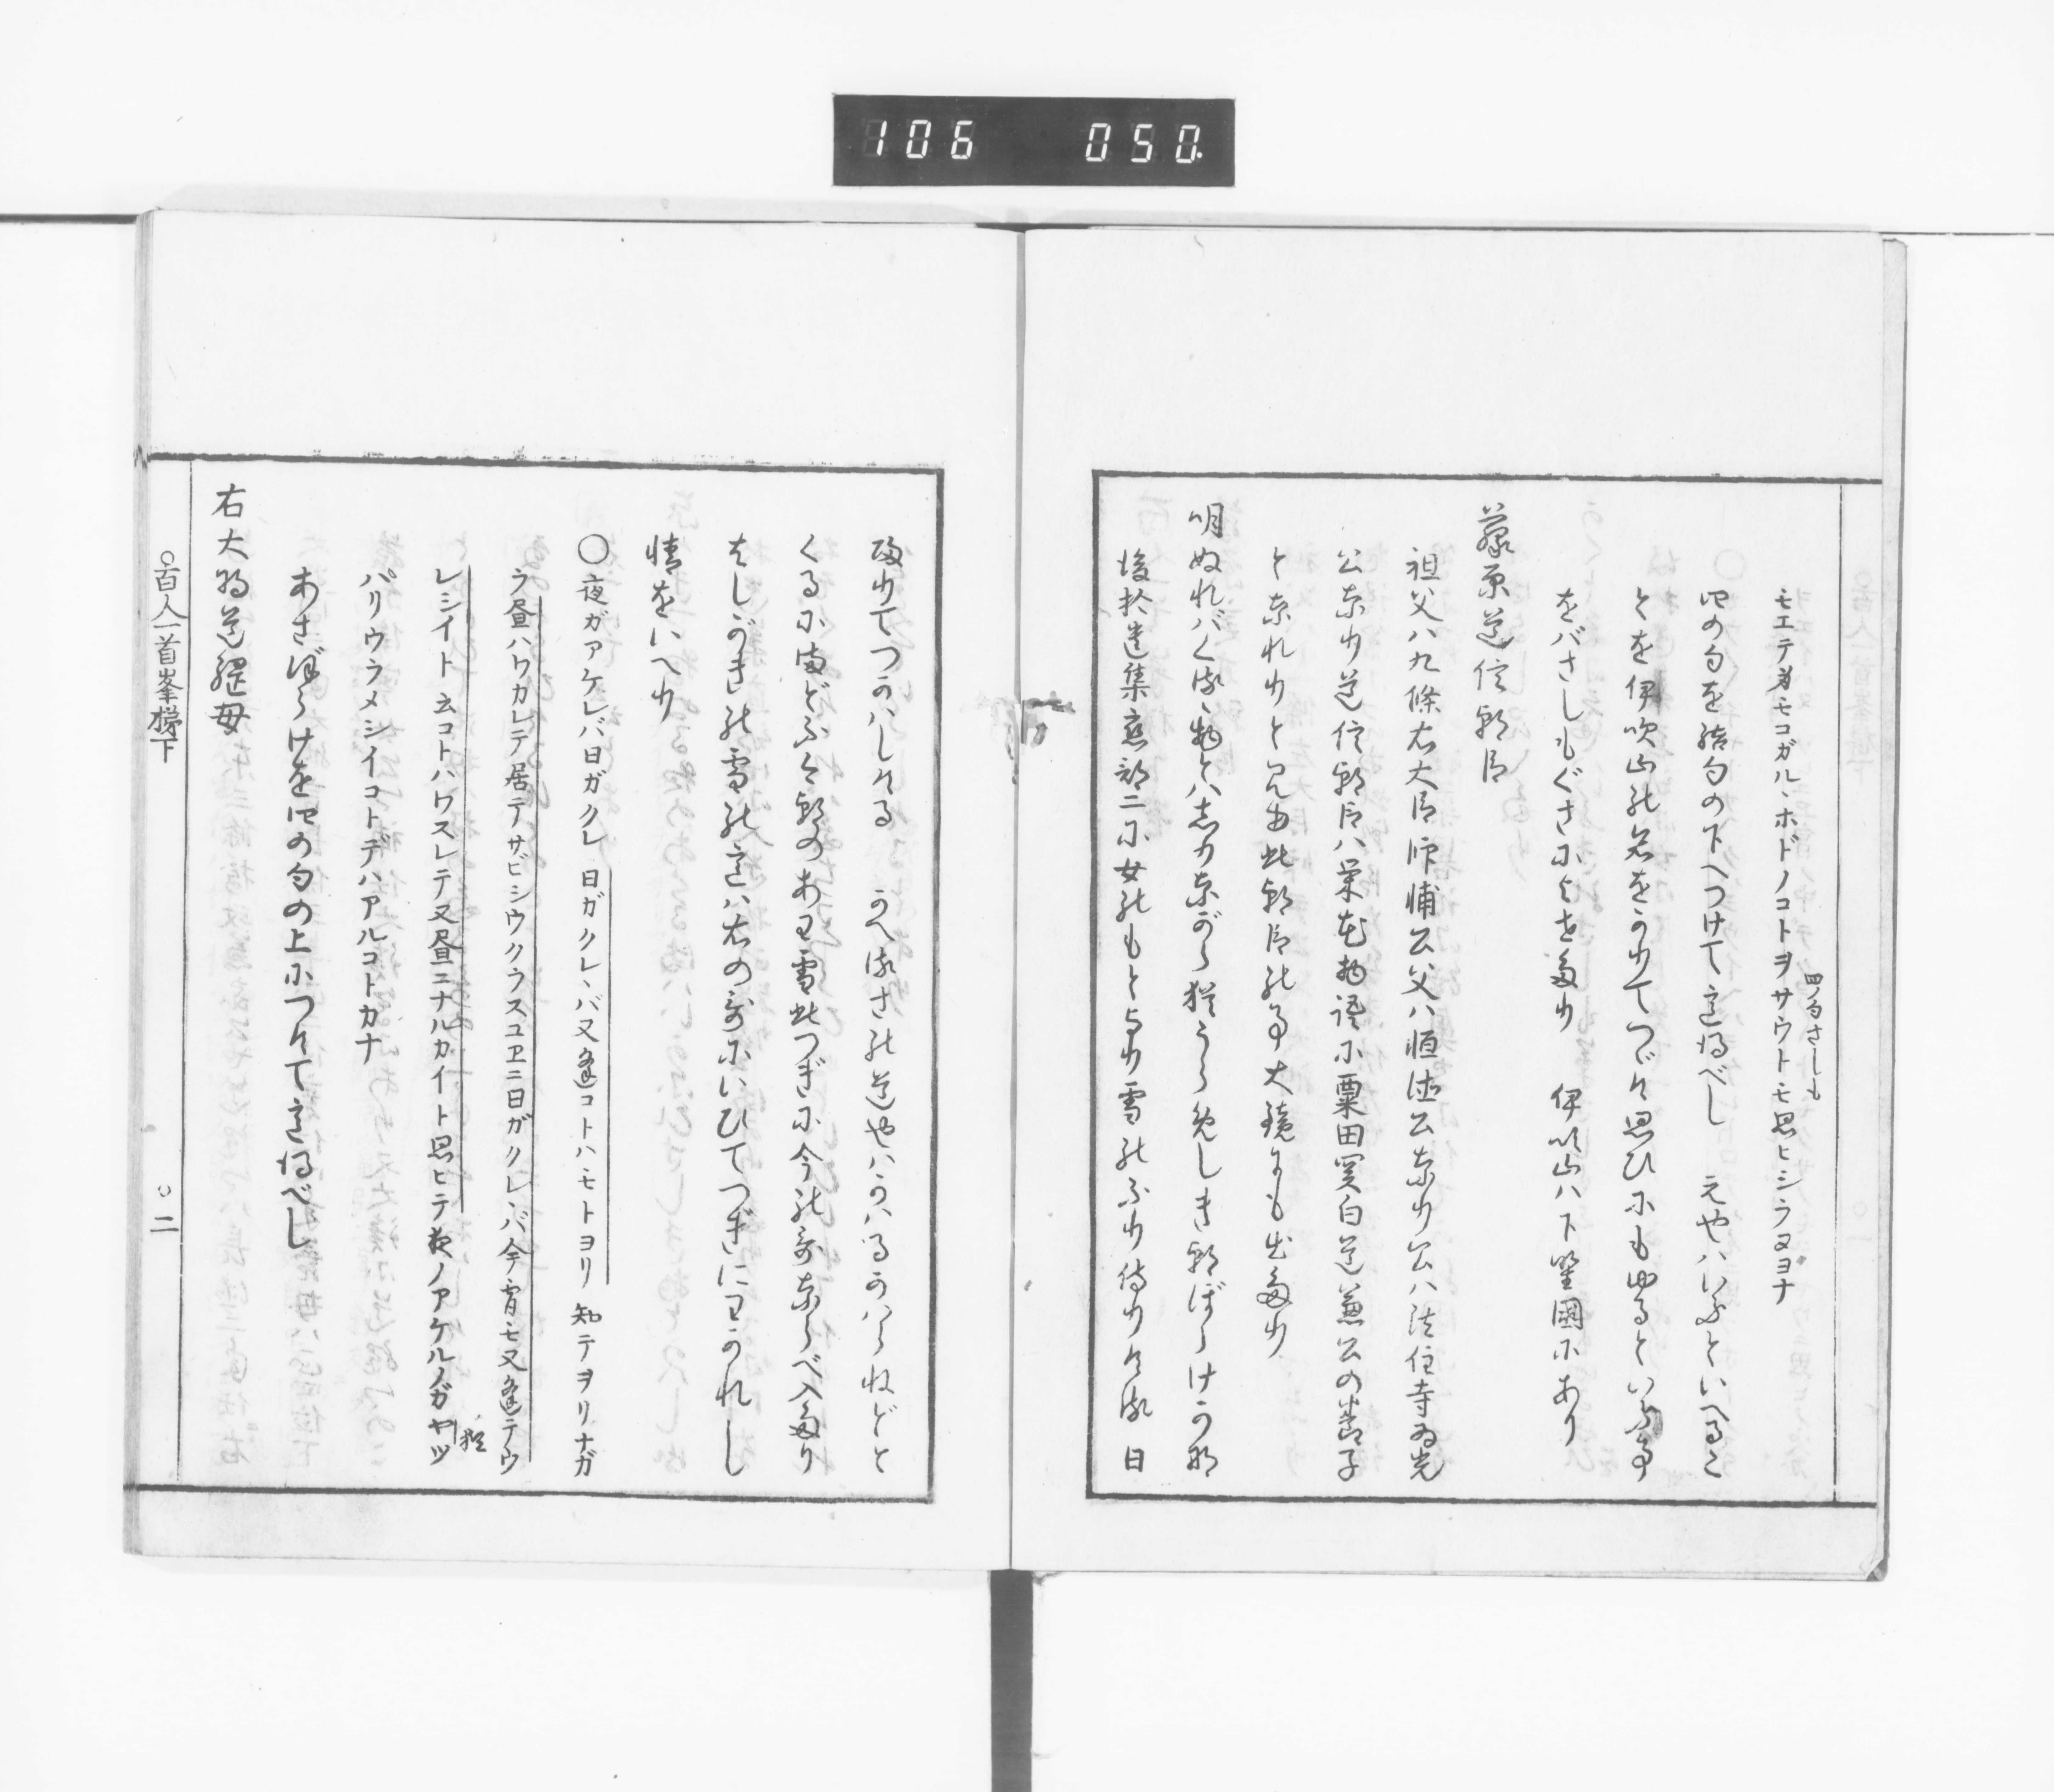 106 050
モエテ身モコガルヽホドノコトヲサウトモ思ヒシラヌヨナ
四句さしも
四の句を結句の下へつけて意得べし 元やハいぶといへるこ
とを伊吹山の名をかりてつゞけ思ひにもゆるといふ事
をバさしもぐさによせたり 伊吹山ハ下野國にあり
藤原道信朝臣
祖父ハ九條右大臣師輔公父ハ恒徳公なり公ハ法住寺為光
公なり道信朝臣ハ栄花物語に粟田関白道兼公の養子
となれりと見由此朝臣の事大鏡にも出たり
明ぬれバくるヽ物とハしりながら猶うらめしき朝ぼらけかな
後拾遺集恋部二に女のもとより雪のふり侍りける日
帰りてつかハしける かへるさの道やハかハるかハらねどと
くるにまどふけ朝のあわ雪此つぎに今の歌ならべ入たり
はしがきの雪の意ハ右の歌にいひてつぎにわかれし
情をいへり
○夜ガアケレバ日ガクレ日ガクレヽバ又逢コトハモトヨリ知テヲリナガ
ラ昼ハワカレテ居テサビシウクラスユヱニ日ガクレヽバ今宵モ又逢テウ
レシイト云コトハワスレテ又昼ニナルカイト思ヒテ夜ノアケルノガヤツ
猶
パリウラメシイコトデハアルコトカナ
あさぼらけを四の句の上につけて意得べし
右大将道綱母
○百人一首峯梯下
○二